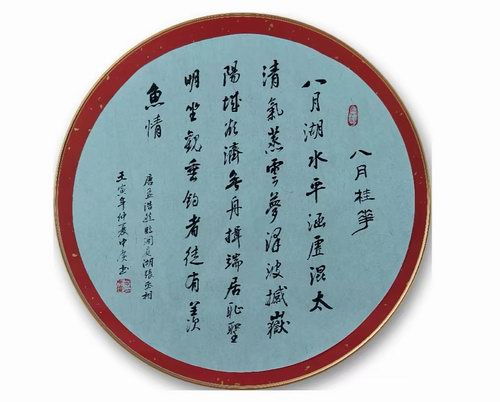 八月桂華
八月湖水平涵虛混太
清氣蒸雲夢澤波撼嶽
陽城欲濟無舟楫端居恥聖
明坐觀垂釣者徒有羨
魚情
唐孟浩然臨洞庭湖張丞相
壬寅年仲夏中書